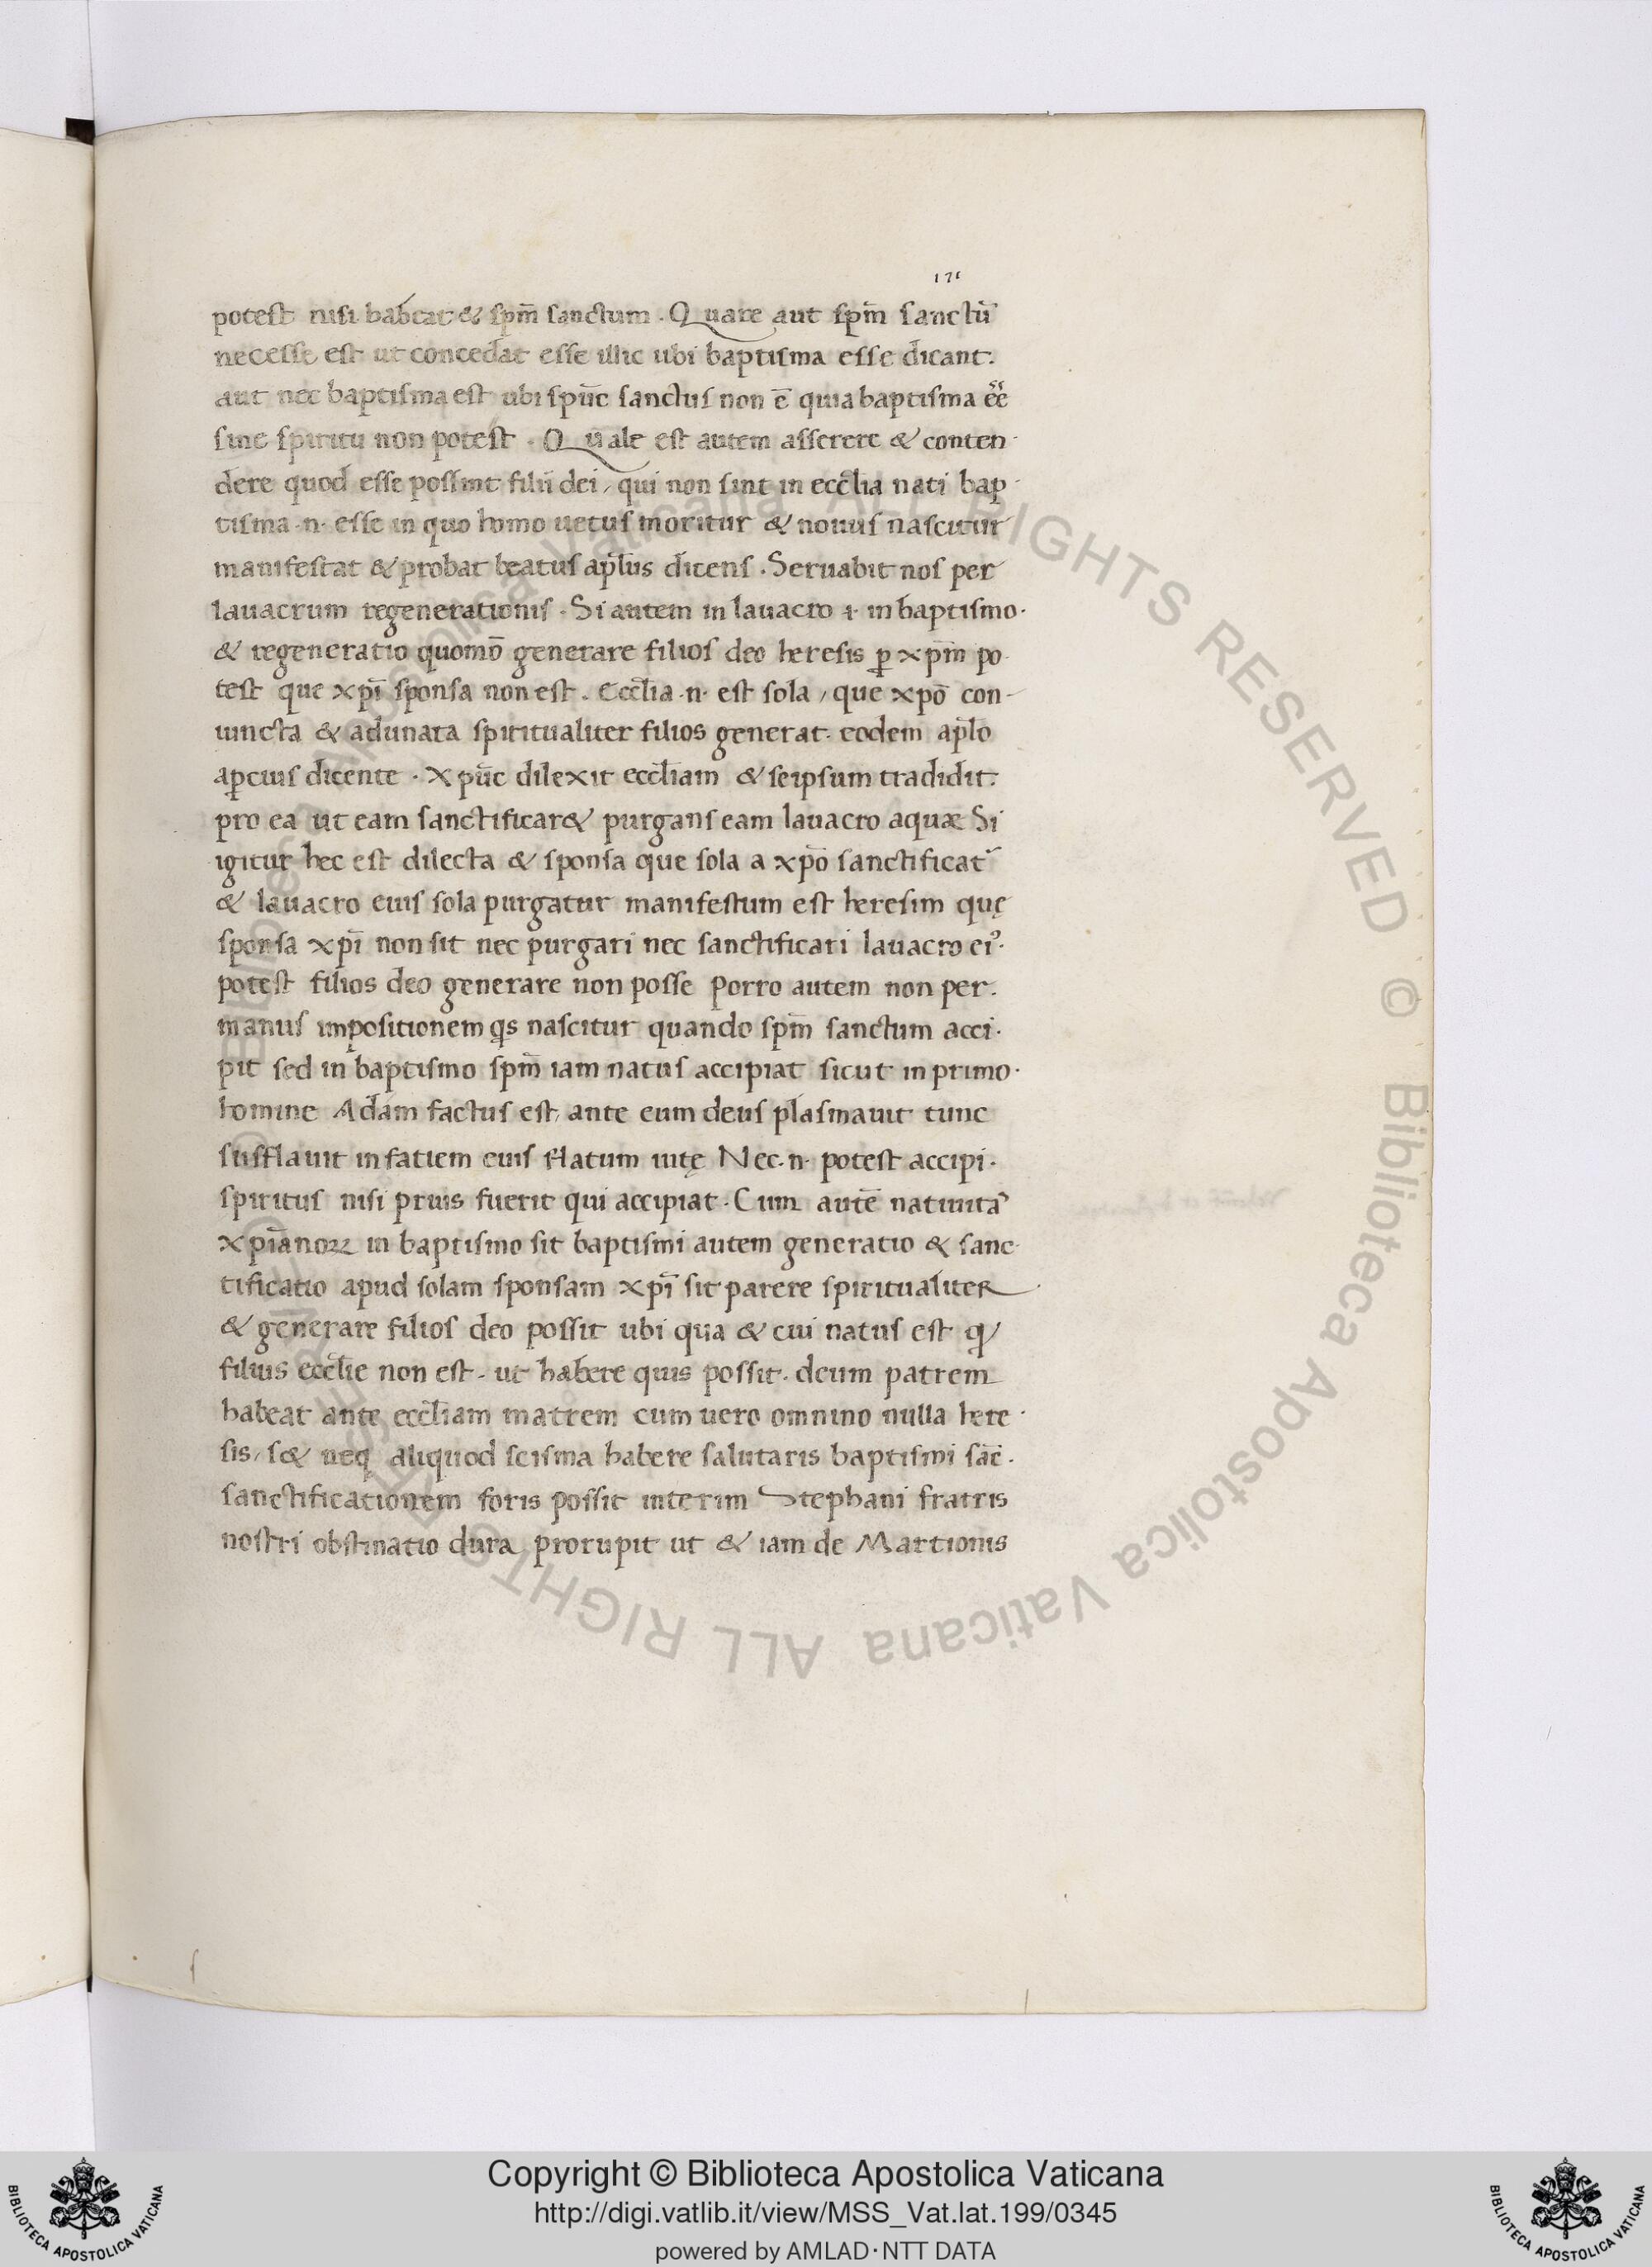 171
potest nisi habeat & sp̄m sanctum . Quare aut sp̄m sanctū
necesse est ut concedat esse illic ubi baptisma esse dicant.
aut nec baptisma est ubi spūc sanctus non ē quia baptisma ēē
sine spiritu non potest . Quale est autem asserere & conten-
dere quod esse possint filii dei, qui non sint in ecclīa nati bap-
tisma .n. esse in quo homo uetus moritur & nouus nascitur
manifestat & probat beatus apl̄us dicens . Seruabit nos per
lauacrum regenerationis . Si autem in lauacro .i. in baptismo.
& regeneratio quomō generare filios deo heresis ꝑ xp̄m po-
test que xp̄i sponsa non est . Ecclīa .n. est sola, que xp̄o con-
iuncta & adunata spiritualiter filios generat. eodem apl̄o
apcius dicente . Xpūc dilexit ecclīam & seipsum tradidit.
pro ea ut eam sanctificar& purgans eam lauacro aquæ Si
igitur hec est dilecta & sponsa que sola a xp̄o sanctificat᷑
& lauacro eius sola purgatur manifestum est heresim quę
sponsa xp̄i non sit nec purgari nec sanctificari lauacro eiꝰ.
potest filios deo generare non posse Porro autem non per.
manus impositionem qs nascitur quando sp̄m sanctum acci.
pit sed in baptismo sp̄m iam natus accipiat sicut in primo.
homine Adam factus est, ante eum deus plasmauit tunc
sufflauit in fatiem eius flatum uitę Nec .n. potest accipi.
spiritus nisi prius fuerit qui accipiat . Cum autē natiuitaꝰ
xp̄ianoꝝ in baptismo sit baptismi autem generatio & sanc-
tificatio apud solam sponsam xp̄i sit parere spiritualiteR
& generare filios deo possit ubi qua & cui natus est q
filius ecclīe non est . ut habere quis possit . deum patrem
habeat ante ecclīam matrem cum uero omnino nulla here.
sis, s& neq aliquod scisma habere salutaris baptismi sāc.
sanctificationem foris possit interim Stephani fratris
nostri obstinatio dura prorupit ut & iam de Martionis
© Biblioteca Apostolica Vaticana ALL RIGHTS RESERVED
© Biblioteca Apostolica Vaticana ALL RIGHTS RESERVED
BIBLIOTECA APOSTOLICA VATICANA
Copyright © Biblioteca Apostolica Vaticana
http://digi.vatlib.it/view/MSS_Vat.lat.199/0345
powered by AMLAD·NTT DATA
BIBLIOTECA APOSTOLICA VATICANA